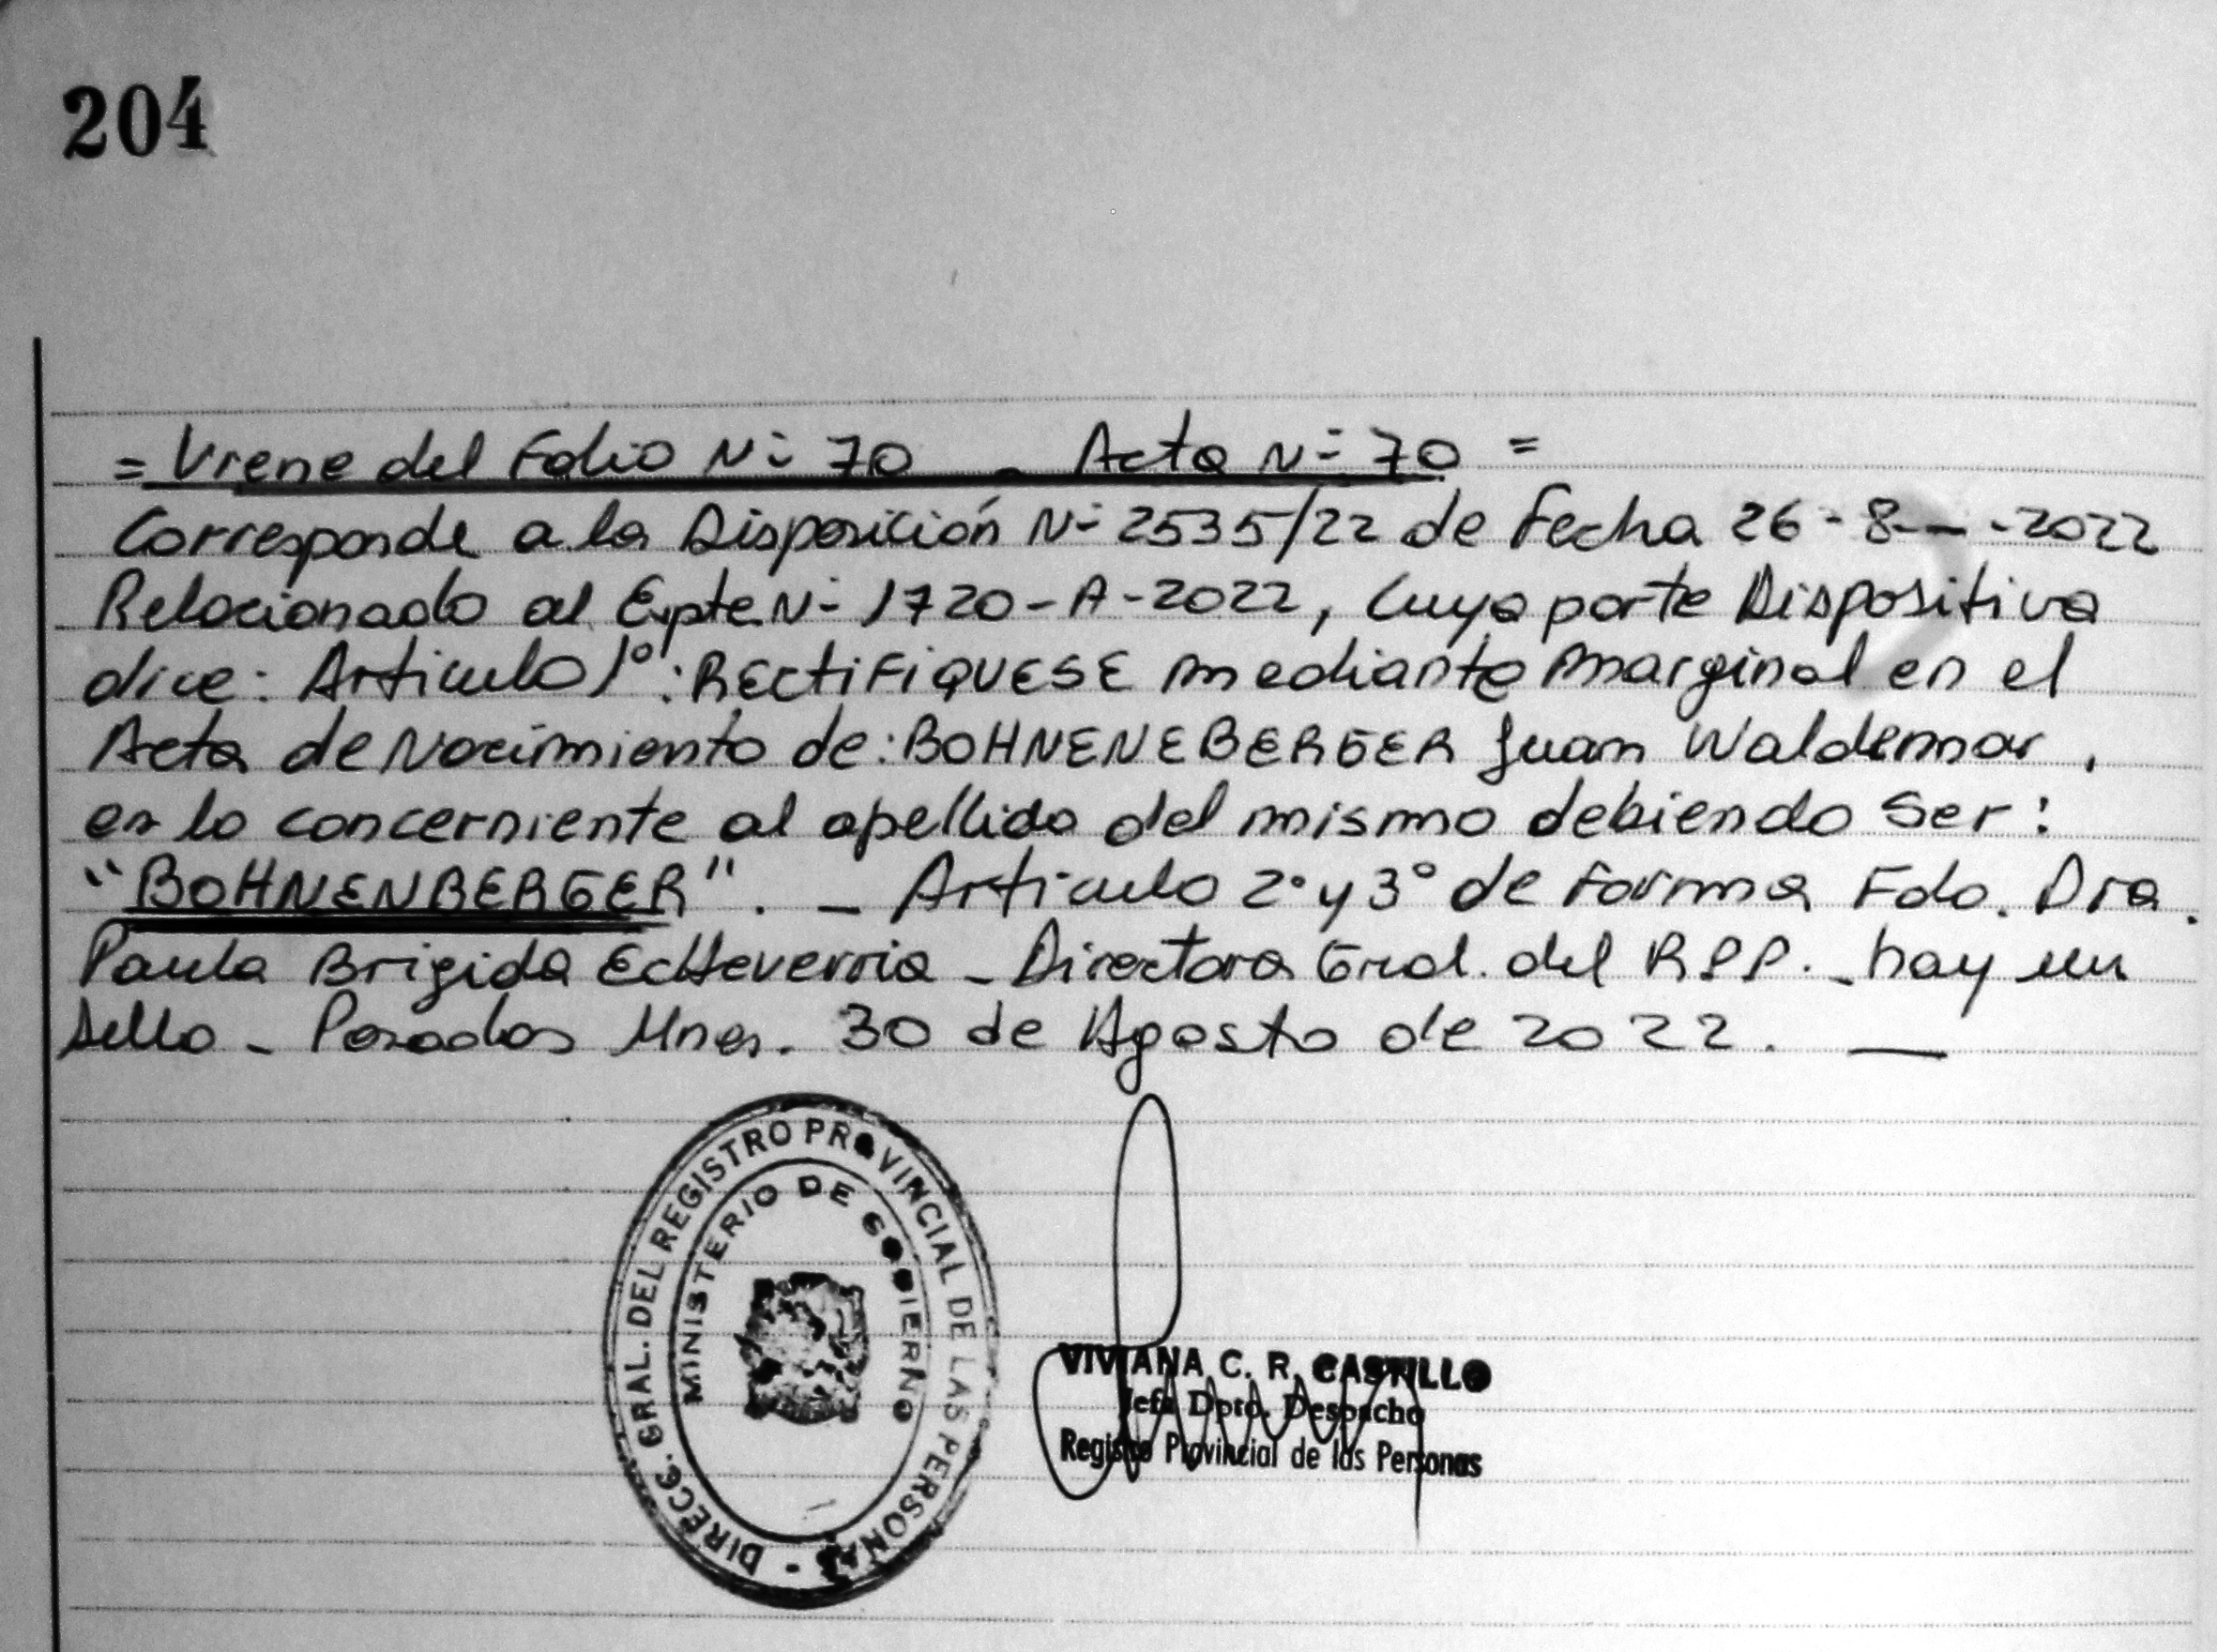 204
= Viene del Folio N° 70 - Acta N° 70 =
Corresponde a la Disposición N° 2535/22 de Fecha 26-8---2022
Relacionado al Expte N° 1720-A-2022, Cuya parte Dispositiva
dice: Articulo 1°: RECTIFIQUESE mediante marginal en el
Acta de Nacimiento de: BOHNENEBERGER Juan Waldemar,
en lo concerniente al apellido del mismo debiendo Ser:
"BOHNENBERGER". - Articulo 2° y 3° de Forma Fdo. Dra.
Paula Brigida Echeverria - Directora Gral. del RPP. - hay un
sello - Posadas Mnes. 30 de Agosto de 2022. —
DIRECC. GRAL. DEL REGISTRO PROVINCIAL DE LAS PERSONAS -
MINISTERIO DE GOBIERNO
VIVIANA C. R. CASTILLO
Jefa Dpto. Despacho
Registro Provincial de las Personas